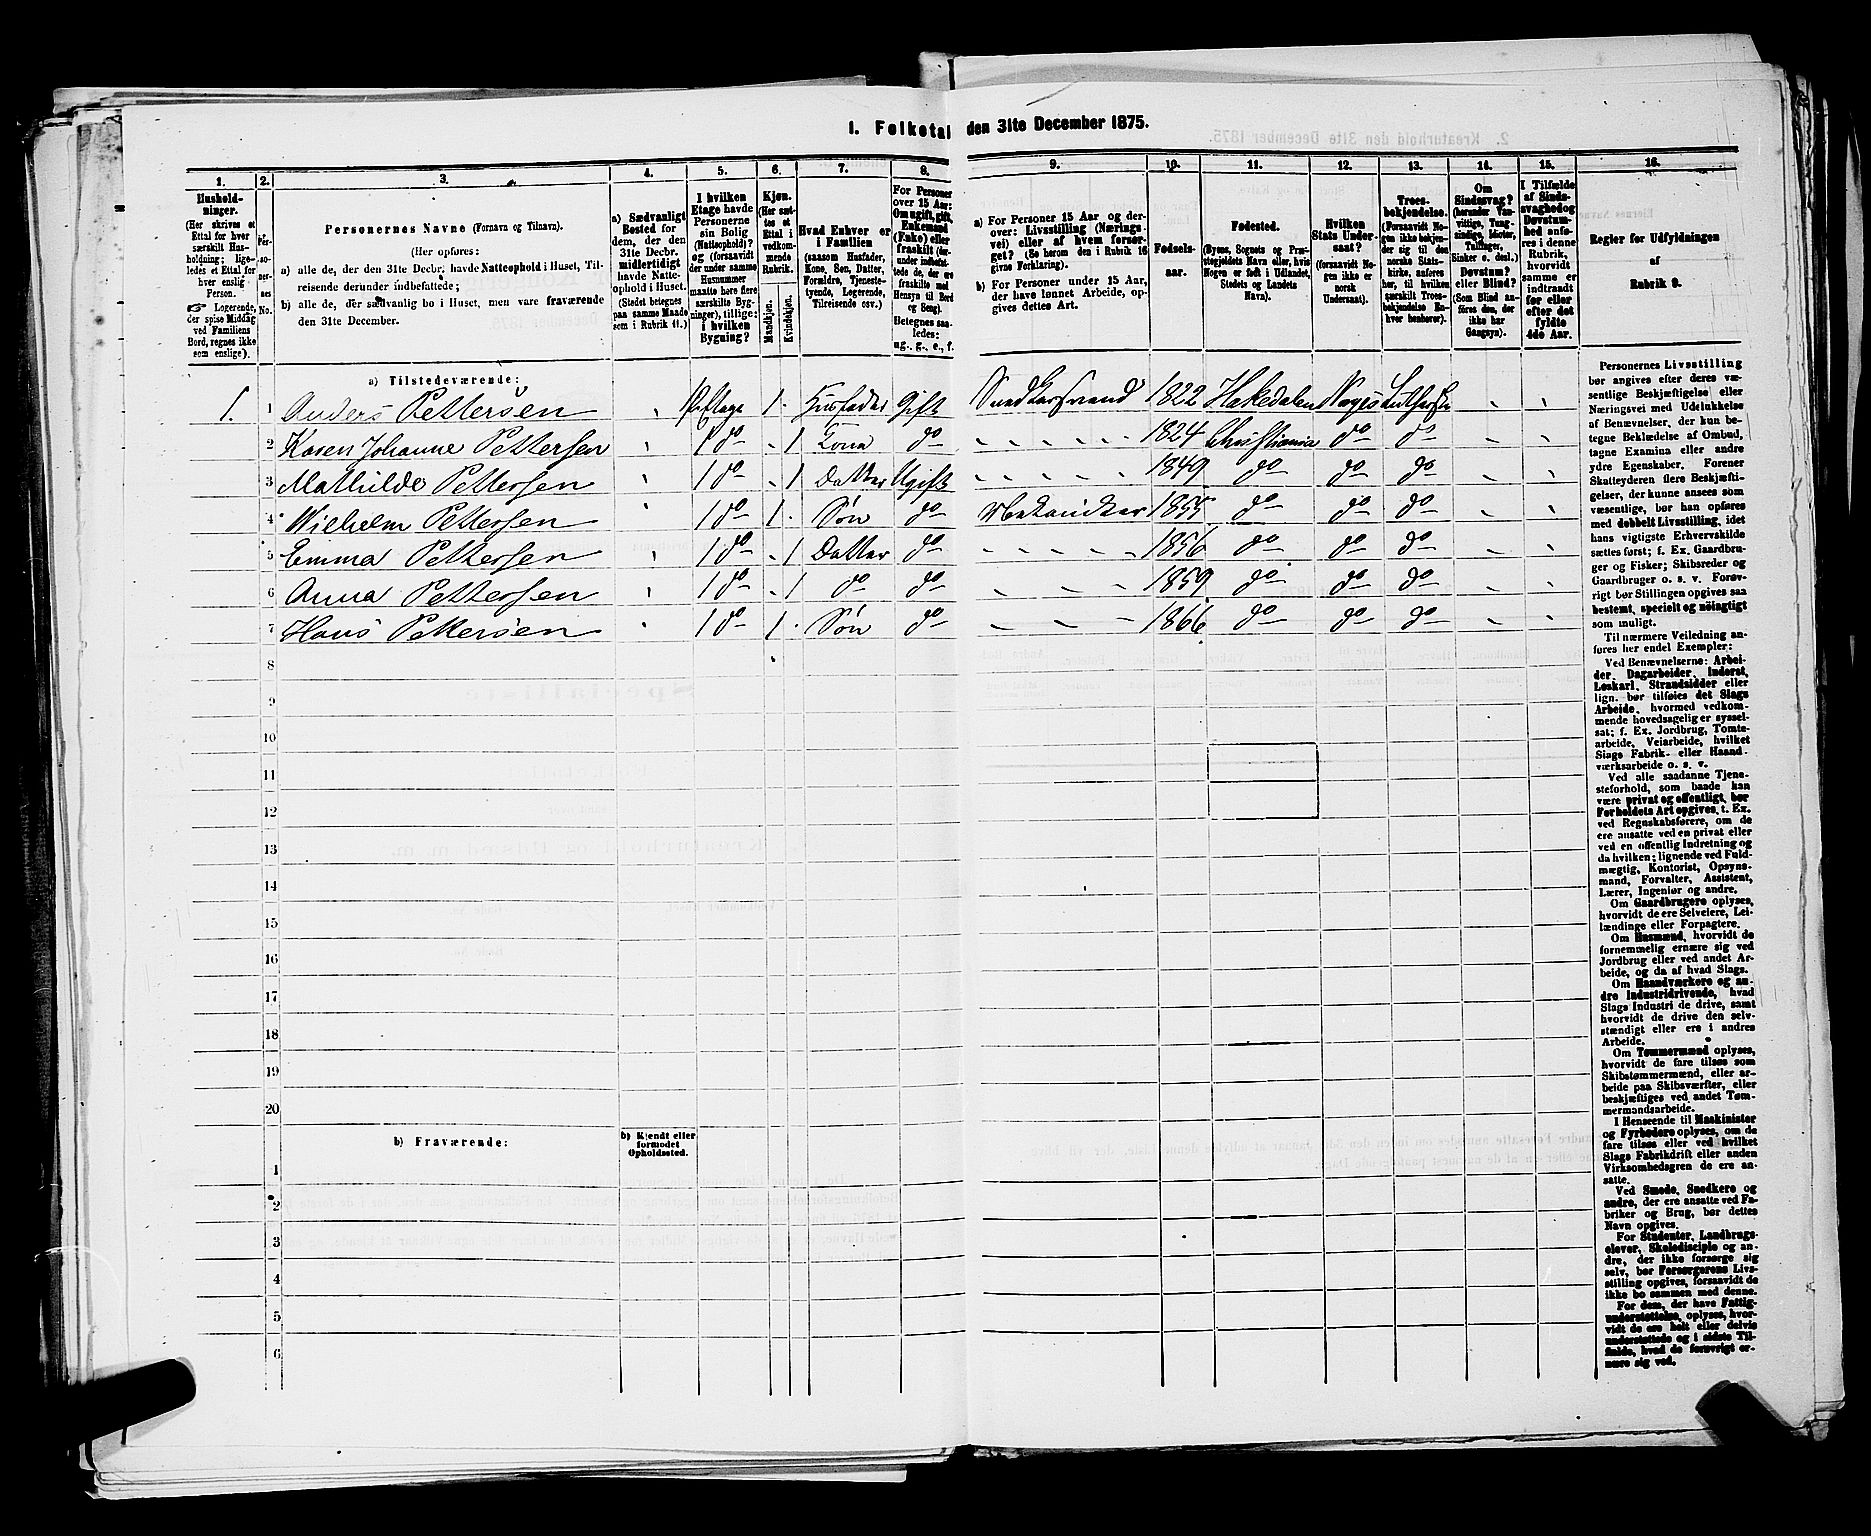 1. Folketal den 31te December 1875.
1. 2. 3. 4. 5. 6. 7. 8. 9. 10. 11. 12. 13. 14. 15. 16.
Hushold-
ninger.
(Her skrives et
Ettal for hver
særskilt Hus-
holdning; lige-
ledes et Ettal for
hver enslig
Person.
☞ Logerende,
der spise Middag
ved Familiens
Bord, regnes ikke
som enslige).
Per-
so-
ner-
nes
No.
Personernes Navne (Fornavn og Tilnavn).
(Her opføres:
a) alle de, der den 31te Decbr. havde Natteophold i Huset, Til-
reisende derunder indbefattede;
b) alle de, der sædvanlig bo i Huset, men vare fraværende
den 31te December.
a) Sædvanligt
Bosted for
dem, der den
31te Decbr.
midlertidigt
havde Natte-
ophold i Huset.
(Stedet betegnes
paa samme Maade
som i Rubrik 11.)
I hvilken
Etage havde
Personerne
sin Bolig?
(Natteophold)?
og (forsaavidt
der under samme
Husnummer
maatte høre flere
særskilte Byg-
ninger), tillige:
i hvilken
Bygning?
Kjøn.
(Her sæt-
tes et
Ettal i
vedkom-
mende
Rubrik.
Mandkjøn.
Kvindekjøn.
Hvad Enhver er
i Familien
(saasom Husfader,
Kone, Søn, Datter,
Forældre, Tjeneste-
tyende, Logerende,
Tilreisende osv.)
For Personer
over 15 Aar:
Om ugift, gift,
Enkemand
(Enke) eller
fraskilt (der-
under indbefat-
tede de, der ere
fraskilte med
Hensyn til Bord
og Seng).
Betegnes saa-
ledes:
ug., g., e., f.
a) For Personer 15 Aar og der-
over: Livsstilling (Nærings-
vei) eller af hvem forsør-
get? (Se herom den i Rubrik 16
givne Forklaring).
b) For Personer under 15 Aar,
der have lønnet Arbeide, op-
gives dettes Art.
Fødsels-
aar.
Fødested.
(Byens, Sognets og Præ-
stegjeldets Navn eller, hvis
Nogen er født i Udlandet,
Stedets og Landets
Navn).
Hvilken
Stats Under-
saat?
(forsaavidt No-
gen ikke er
norsk
Undersaat).
Troes-
bekjendelse.
(Forsaavidt No-
gen ikke bekjen-
der sig til den
norske Stats-
kirke, anføres
her, til hvilken
særskilt Troes-
bekjendelse En-
hver henhører).
Om
Sindssvag?
(herunder Van-
vittige, Tung-
sindige, Idioter,
Tullinger,
Sinker o. desl.)
Døvstum?
eller Blind?
(Som Blind an-
føres den, der
ikke har
Gangsyn).
I Tilfælde
af Sinds-
svaghed og
Døvstum-
hed anfø-
res i denne
Rubrik,
hvorvidt
samme er
indtraadt
før eller
efter det
fyldte
4de Aar.
Regler for Udfyldningen
af
Rubrik 9.
a) Tilstedeværende:
1. 1 Anders Pettersen 1ste Etage 1 Husfader Gift 1822 Hakedalen Norges Luthersk
2 Karen Johanne Pettersen 1 do 1 Kona do 1824 Christiania do do
3 Mathilde Pettersen 1 do 1 Datter Ugift 1849 do do do
4 Wilhelm Pettersen 1 do 1 Søn do Mekanikker 1855 do do do
5 Emma Pettersen 1 do 1 Datter do 1856 do do do
6 Anna Pettersen 1 do 1 do do 1859 do do do
7 Hans Pettersen 1 do 1 Søn do 1866 do do do
8
9
10
11
12
13
14
15
16
17
18
19
20
b) Fraværende:
b) Kjendt eller
formodet
Opholdssted.
1
2
3
4
5
6
Personernes Livsstilling
bør angives efter deres væ-
sentlige Beskjæftigelse eller
Næringsvei med Udelukkelse
af Benævnelser, der kun be-
tegne Beklædelse af Ombud,
tagne Examina eller andre
ydre Egenskaber. Forener
Skatteyderen flere Beskjæfti-
gelser, der kunne ansees som
væsentlige, bør han opføres
med dobbelt Livsstilling, idet
hans vigtigste Erhvervskilde
sættes først; f. Ex. Gaardbru-
ger og Fisker; Skibsreder og
Gaardbruger o. s. v. Forøv-
rigt bør Stillingen opgives saa
bestemt, specielt og nøiagtigt
som muligt.
Til nærmere Veiledning an-
føres her endel Exempler:
Ved Benævnelserne: Arbei-
der, Dagarbeider, Inderst,
Løskarl, Strandsidder eller
lign. bør tilføies det Slags
Arbeide, hvormed vedkom-
mende hovedsagelig er syssel-
sat; f. Ex. Jordbrug, Tomte-
arbeide, Veiarbeide, hvilket
Slags Fabrik- eller Haand-
værksarbeide o. s. v.
Ved alle saadanne Tjene-
steforhold, som baade kan
være privat og offentligt, bør
Forholdets Art opgives, t. Ex.
ved Regnskabsførere, om de
ere ansatte ved en privat eller
ved en offentlig Indretning og
da hvilken; lignende ved Fuld-
mægtig, Kontorist, Opsyns-
mand, Forvalter, Assistent,
Lærer, Ingeniør og andre.
Om Gaardbrugere oplyses,
hvorvidt de ere Selveiere, Lei-
lændinge eller Forpagtere.
Om Husmænd, hvorvidt de
fornemmelig ernære sig ved
Jordbrug eller ved andet Ar-
beide, og da af hvad Slags.
Om Haandværkere og an-
dre Industridrivende, hvad
Slags Industri de drive, samt
hvorvidt de drive den selv-
stændigt eller ere i andres
Arbeide.
Om Tømmermænd oplyses,
hvorvidt de fare tilsøs som
Skibstømmermænd, eller ar-
beide paa Skibsværfter, eller
beskjæftiges ved andet Tøm-
mermandsarbeide.
I Henseende til Maskinister
og Fyrbødere oplyses, om de
fare tilsøs eller ved hvilket
Slags Fabrikdrift eller anden
Virksomhedsgren de ere an-
satte.
Ved Smede, Snedkere og
andre, der ere ansatte ved Fa-
briker og Brug, bør dettes
Navn opgives.
For Studenter, Landbrugs-
elever, Skoledisciple og an-
dre, der ikke forsørge sig
selv, bør Forsørgerens Livs-
stilling opgives, forsaavidt de
ikke bo sammen med denne.
For dem, der have Fattig-
understøttelse, oplyses, hvor-
vidt de ere helt eller delvis
understøttede og i sidste Til-
fælde, hvad de forøvrigt er-
nære sig ved.